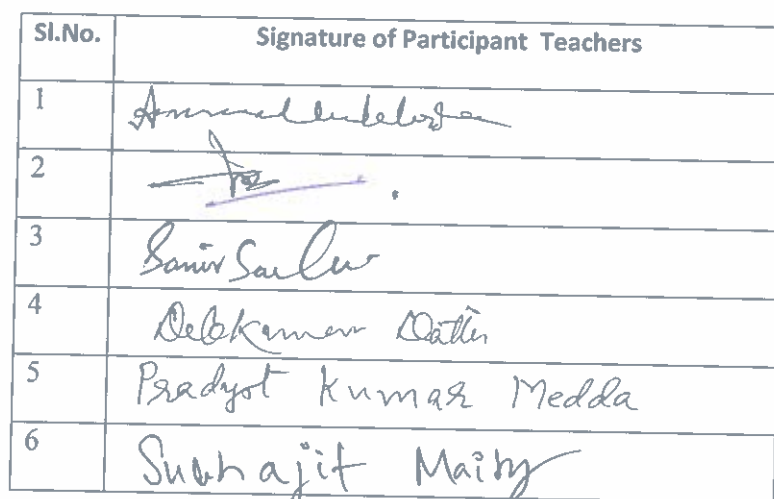 Sl.No. Signature of Participant Teachers
1
2
3 Samir Sarkar
4 Debkumar Datta
5 Pradyot Kumar Medda
6 Subhajit Maity